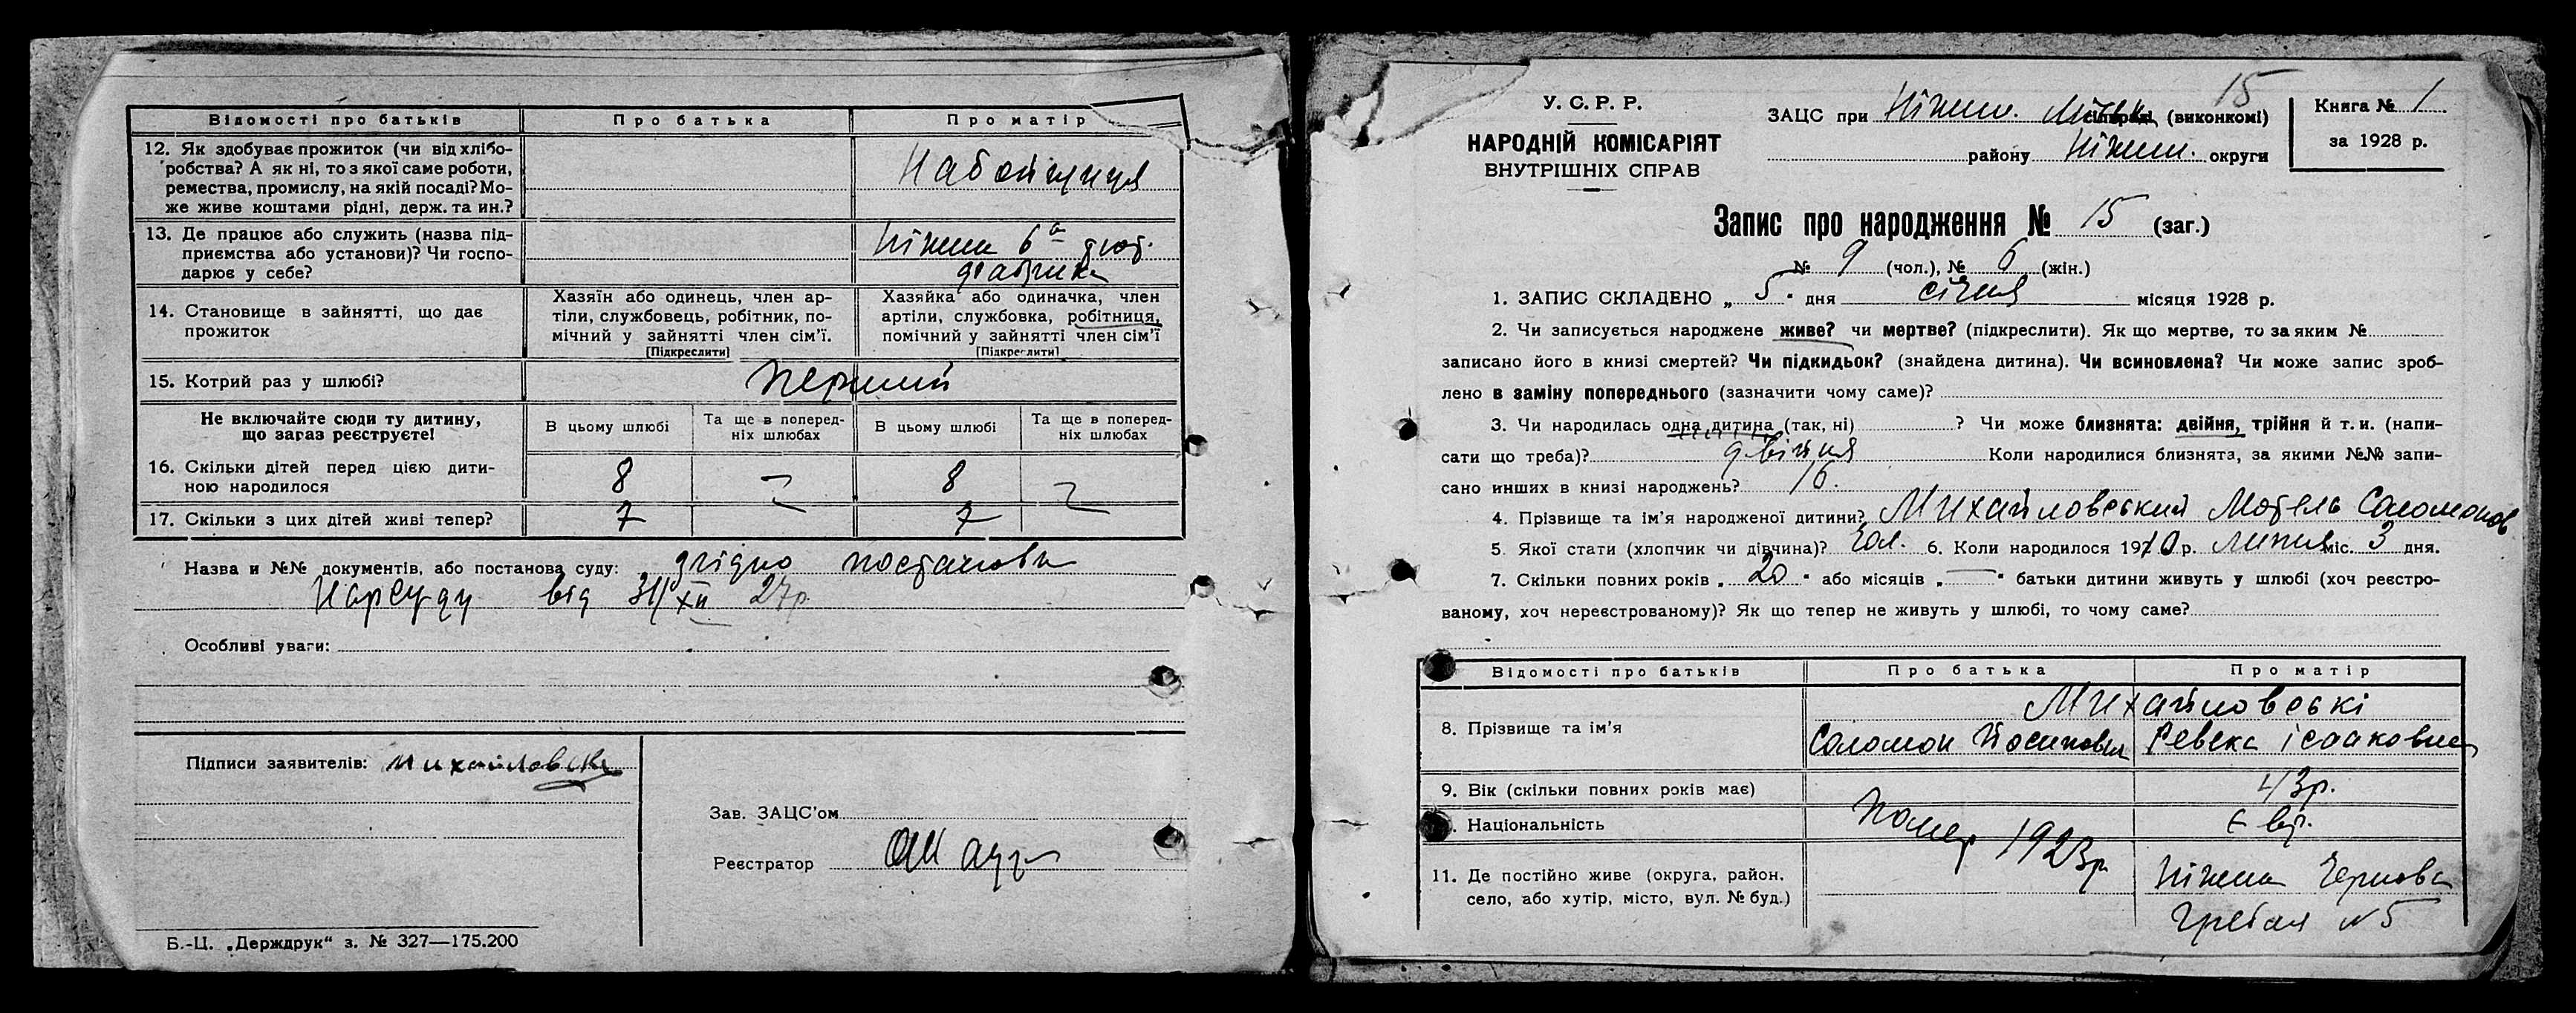 Відомості про батьків Про батька Про матір
12. Як здобуває прожиток (чи від хлібо-
робства? А як ні, то з якої саме роботи,
ремества, промислу, на якій посаді? Мо-
же живе коштами рідні, держ. та ин.?
Набойщиця
13. Де працює або служить (назва під-
приємства або установи)? Чи госпо-
дарює у себе?
Ніжин 6а тют.
фабрика
14. Становище в зайнятті, що дає
прожиток
Хазяїн або одинець, член ар-
тіли, службовець, робітник, по-
мічний у зайнятті член сім'ї.
[Підкреслити]
Хазяйка або одиначка, член
артіли, службовка, робітниця,
помічний у зайнятті член сім'ї
[Підкреслити]
15. Котрий раз у шлюбі? перший
Не включайте сюди ту дитину,
що зараз реєструєте!
В цьому шлюбі
Та ще в поперед-
ніх шлюбах
В цьому шлюбі
Та ще в поперед-
ніх шлюбах
16. Скільки дітей перед цією дити-
ною народилося
8 — 8 —
17. Скільки з цих дітей живі тепер? 7 7
Назва и №№ документів, або постанова суду: згідно постанови
Нарсуду від 31/XII 27р.
Особливі уваги:
Підписи заявителів: Михайловска
Зав. ЗАЦС'ом
Реєстратор
Б.-Ц. „Держдрук“ з. № 327—175.200
У. С. Р. Р.
НАРОДНІЙ КОМІСАРІЯТ
ВНУТРІШНІХ СПРАВ
15
ЗАЦС при Ніжин. (виконкомі)
району Ніжин. округи
Книга № 1
за 1928 р.
Запис про народження № 15 (заг.)
№ 9 (чол.), № 6 (жін.)
1. ЗАПИС СКЛАДЕНО „5“ дня січня місяця 1928 р.
2. Чи записується народжене живе? чи мертве? (підкреслити). Як що мертве, то за яким №
записано його в книзі смертей? Чи підкидьок? (знайдена дитина). Чи всиновлена? Чи може запис зроб-
лено в заміну попереднього (зазначити чому саме)?
3. Чи народилась одна дитина (так, ні) ? Чи може близнята: двійня, трійня й т. и. (напи-
сати що треба)? двійня Коли народилися близнята, за якими №№ запи-
сано инших в книзі народжень? 16.
4. Прізвище та ім'я народженої дитини? Михайловський Мотель Саломонов
5. Якої стати (хлопчик чи дівчина)? Чол. 6. Коли народилося 1910 р. липня міс. 3 дня.
7. Скільки повних років „20“ або місяців „—“ батьки дитини живуть у шлюбі (хоч реєстро-
ваному, хоч нереєстрованому)? Як що тепер не живуть у шлюбі, то чому саме?
Відомості про батьків Про батька Про матір
8. Прізвище та ім'я
Михайловські
Соломон Йосипович Ревека Ісааковна
9. Вік (скільки повних років має) 43р.
Національність Євр.
Помер 1923р.
11. Де постійно живе (округа, район,
село, або хутір, місто, вул. № буд.)
Ніжин Чернова
Гребля № 5